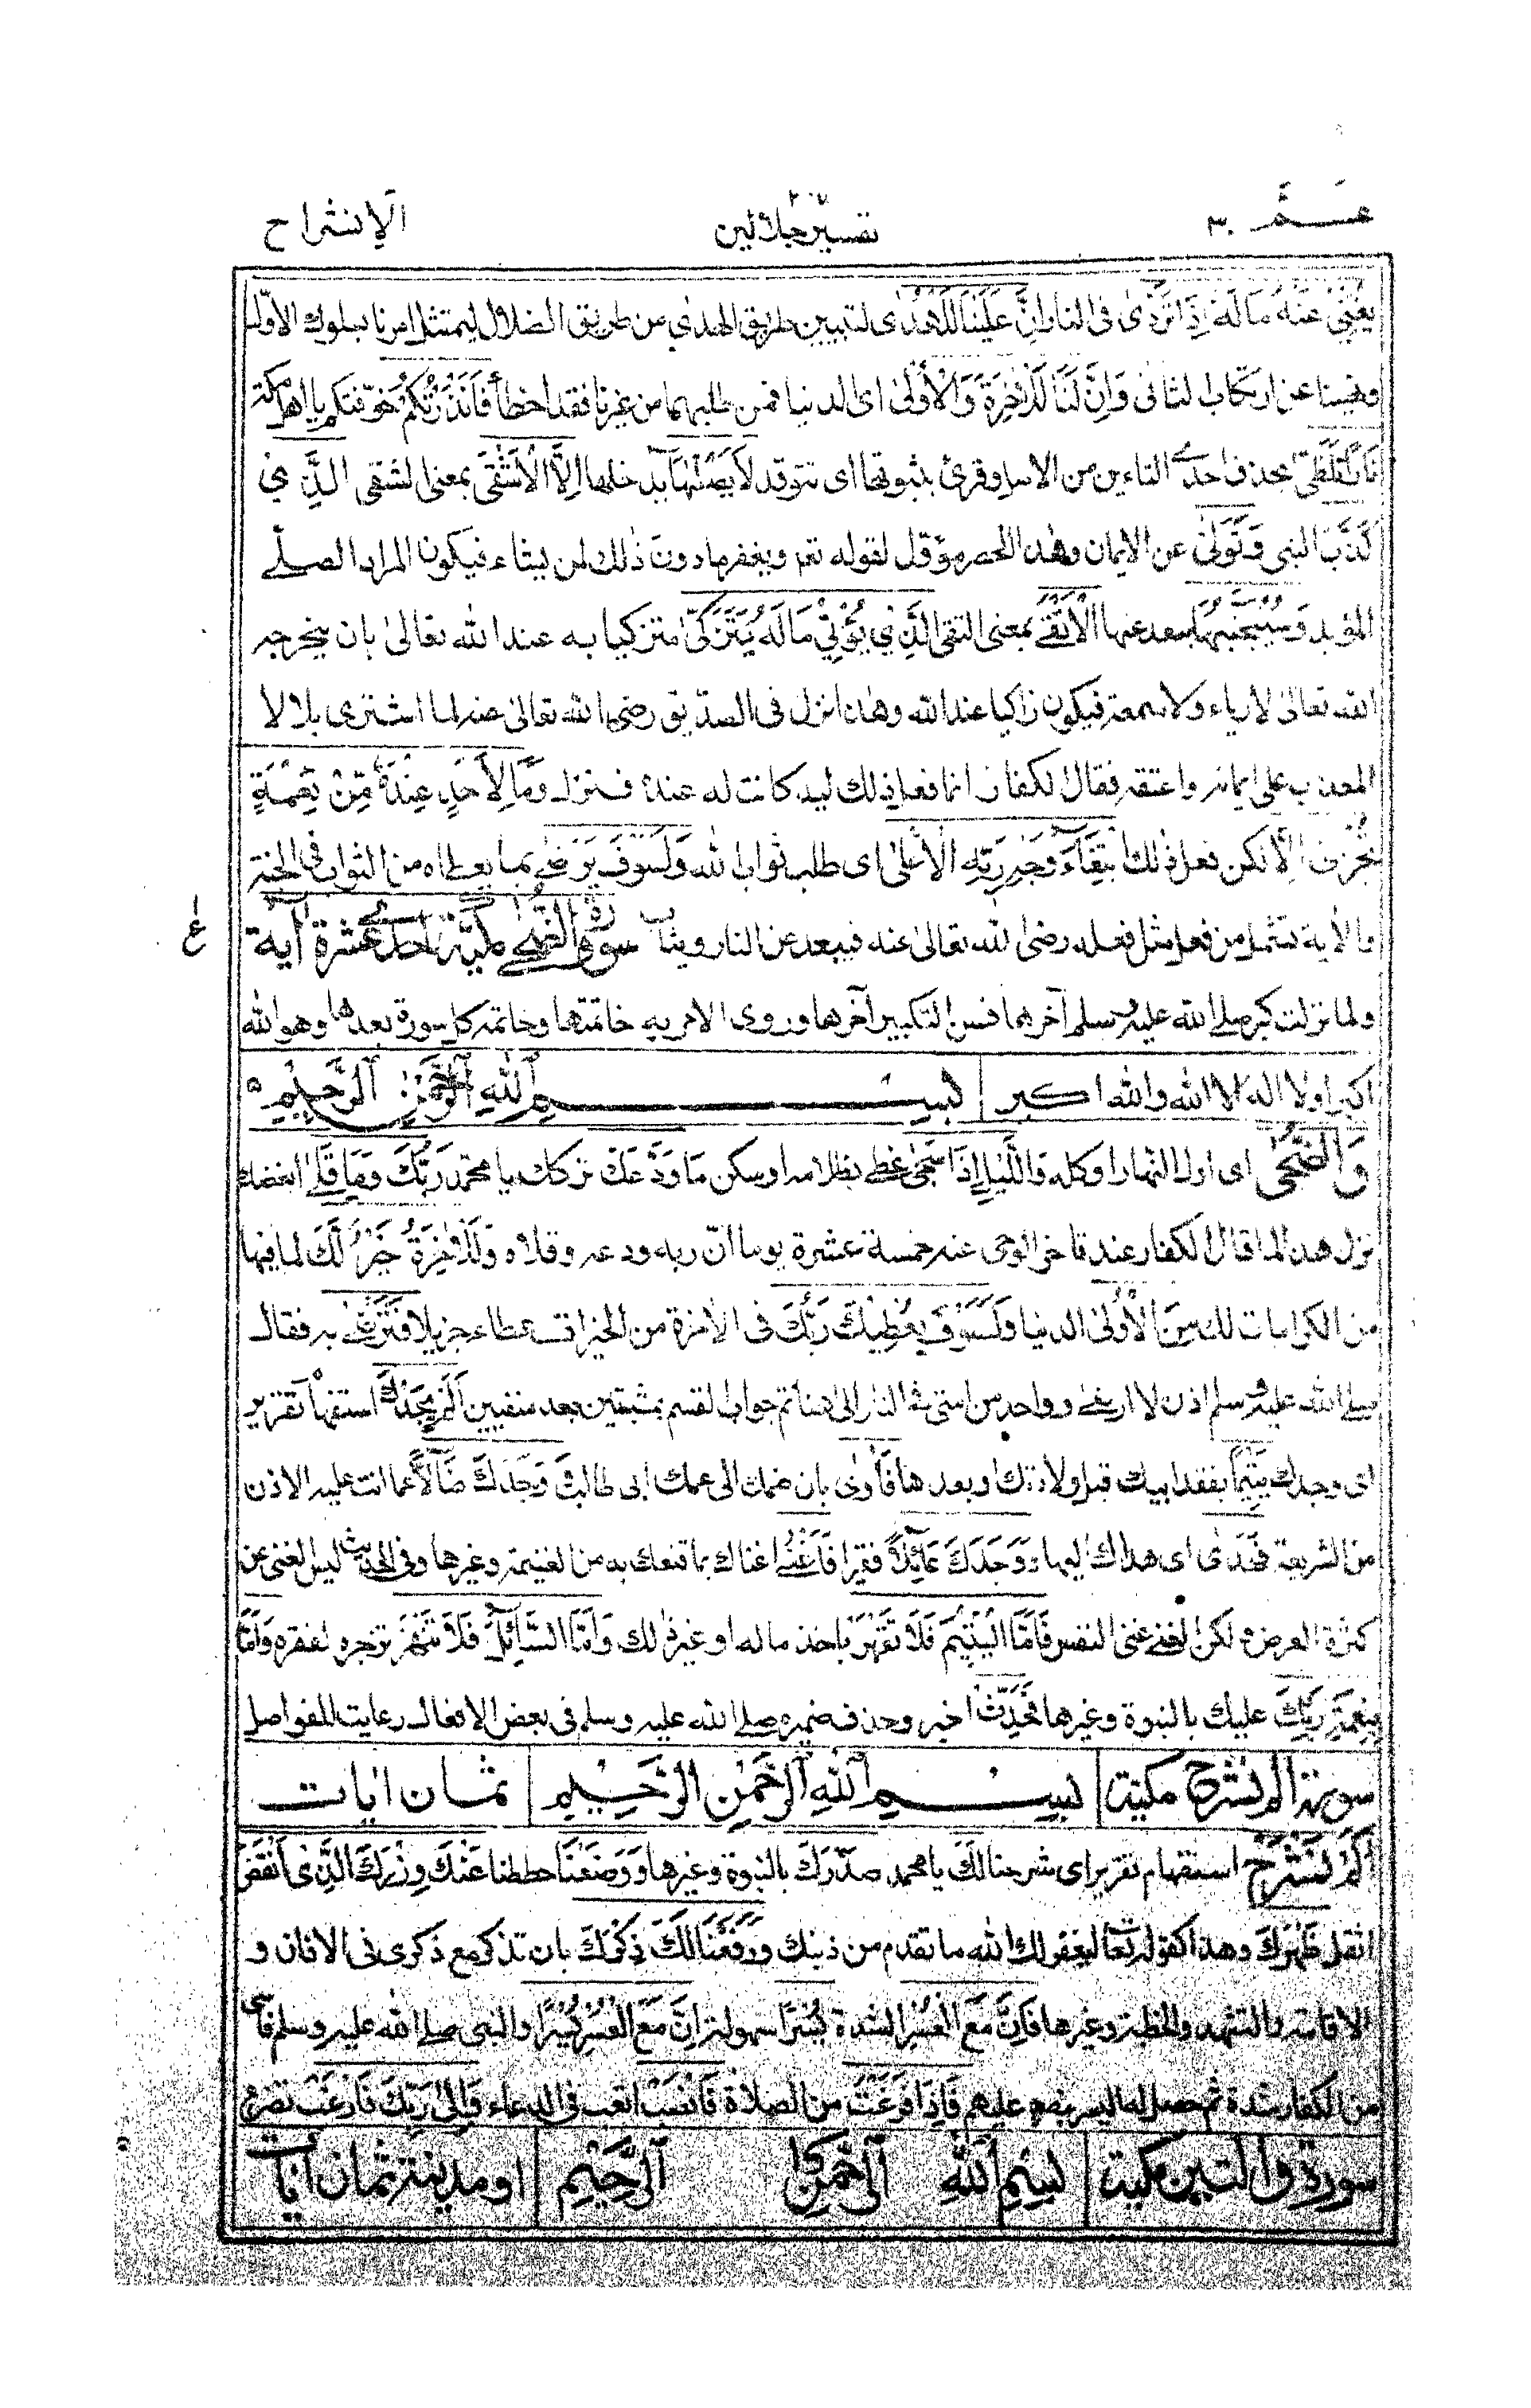 عـــم ٣٠
تفسير جلالين
الانشراح
يُغْنِيْ عَنْهُ مَالُهٗٓ اِذَا تَرَدّٰى فى النار اِنَّ عَلَيْنَا لَلْهُدٰى لتبيين طريق الهدى من طريق الضلال ليمتثل امرنا بسلوك الاوّل
ونهينا عن ارتكاب الثانى وَاِنَّ لَنَا لَلْاٰخِرَةَ وَالْاُوْلٰى اى الدنيا فمن طلبهما من غيرنا فقد اخطأ فَاَنْذَرْتُكُمْ خوّفتكم يا اهل مكة
نَارًا تَلَظّٰى بحذف احدى التاءين من الاصل وقرئ بثبوتها اى تتوقد لَا يَصْلٰىهَآ يدخلها اِلَّا الْاَشْقَى بمعنى الشقى الَّذِيْ
كَذَّبَ النبى وَتَوَلّٰى عن الايمان وهذا الحصر مؤول لقوله تعم ويغفر ما دون ذلك لمن يشاء فيكون المراد الصلى
المؤبد وَسَيُجَنَّبُهَا يبعد عنها الْاَتْقَى بمعنى التقى الَّذِيْ يُؤْتِيْ مَالَهٗ يَتَزَكّٰى متزكيا به عند الله تعالى بان يخرجه
لله تعالى لا رياء ولا سمعة فيكون زاكيا عند الله وهذا نزل فى الصديق رضى الله تعالى عنه لما اشترى بلالا
المعذب على ايمانه واعتقه فقال الكفار انما فعل ذلك ليد كانت له عنده فنزل وَمَا لِاَحَدٍ عِنْدَهٗ مِنْ نِّعْمَةٍ
تُجْزٰى اِلَّا لكن فعل ذلك ابْتِغَآءَ وَجْهِ رَبِّهِ الْاَعْلٰى اى طلب ثواب الله وَلَسَوْفَ يَرْضٰى بما يعطاه من الثواب فى الجنة
والاية تشمل من فعل مثل فعله رضى الله تعالى عنه فيبعد عن النار ويثاب سورة الضحى مكيّة احدى عشرة آية
ع
ولما نزلت كبر صلے الله عليه وسلم آخرها فسن التكبير آخرها وروى الامر به خاتمتها وخاتمة كل سورة بعدها وهو الله
اكبر او لا اله الا الله والله اكبر بسم الله الرحمن الرحيم
وَالضُّحٰى اى اول النهار او كله وَالَّيْلِ اِذَا سَجٰى غطى بظلامه او سكن مَا وَدَّعَكَ تركك يا محمد رَبُّكَ وَمَا قَلٰى ابغضك
نزل هذا لما قال الكفار عند تاخر الوحى عنه خمسة عشرة يوما انّ ربه ودعه وقلاه وَلَلْاٰخِرَةُ خَيْرٌ لَّكَ لما فيها
من الكرامات لك مِنَ الْاُوْلٰى الدنيا وَلَسَوْفَ يُعْطِيْكَ رَبُّكَ فى الاخرة من الخيرات عطاء جزيلا فَتَرْضٰى به فقال
صلے الله عليه وسلم اذن لا ارضى وواحد من امتى فى النار الى هنا تم جواب القسم بمثبتين بعد منفيين اَلَمْ يَجِدْكَ استفهام تقرير
اى وجدك يَتِيْمًا بفقد ابيك قبل ولادتك او بعدها فَاٰوٰى بان ضمك الى عمك ابى طالب وَوَجَدَكَ ضَآلًّا عما انت عليه الاٰن
من الشريعة فَهَدٰى اى هداك اليها وَوَجَدَكَ عَآئِلًا فقيرا فَاَغْنٰى اغناك بما قنعك به من الغنيمة وغيرها وفى الحديث ليس الغنى عن
كثرة العرض ولكن الغنى غنى النفس فَاَمَّا الْيَتِيْمَ فَلَا تَقْهَرْ باخذ ماله او غير ذلك وَاَمَّا السَّآئِلَ فَلَا تَنْهَرْ تزجره لفقره وَاَمَّا
بِنِعْمَةِ رَبِّكَ عليك بالنبوة وغيرها فَحَدِّثْ اخبر وحذف ضميره صلے الله عليه وسلم فى بعض الافعال رعاية للفواصل
سورة الم نشرح مكية بسم الله الرحمن الرحيم ثمان ايات
اَلَمْ نَشْرَحْ استفهام تقرير اى شرحنا لَكَ يا محمد صَدْرَكَ بالنبوة وغيرها وَوَضَعْنَا حططنا عَنْكَ وِزْرَكَ الَّذِىْ اَنْقَضَ
اثقل ظَهْرَكَ وهذا كقوله تعا ليغفر لك الله ما تقدم من ذنبك وَرَفَعْنَا لَكَ ذِكْرَكَ بان تذكر مع ذكرى فى الاذان و
الاقامة والتشهد والخطبة وغيرها فَاِنَّ مَعَ الْعُسْرِ الشدة يُسْرًا سهولة اِنَّ مَعَ الْعُسْرِ يُسْرًا والنبى صلے الله عليه وسلم قاسى
من الكفار شدة ثم حصل له اليسر بنصره عليهم فَاِذَا فَرَغْتَ من الصلاة فَانْصَبْ اتعب فى الدعاء وَاِلٰى رَبِّكَ فَارْغَبْ تضرع
سورة والتين مكية بسم الله الرحمن الرحيم او مدنية ثمان ايات